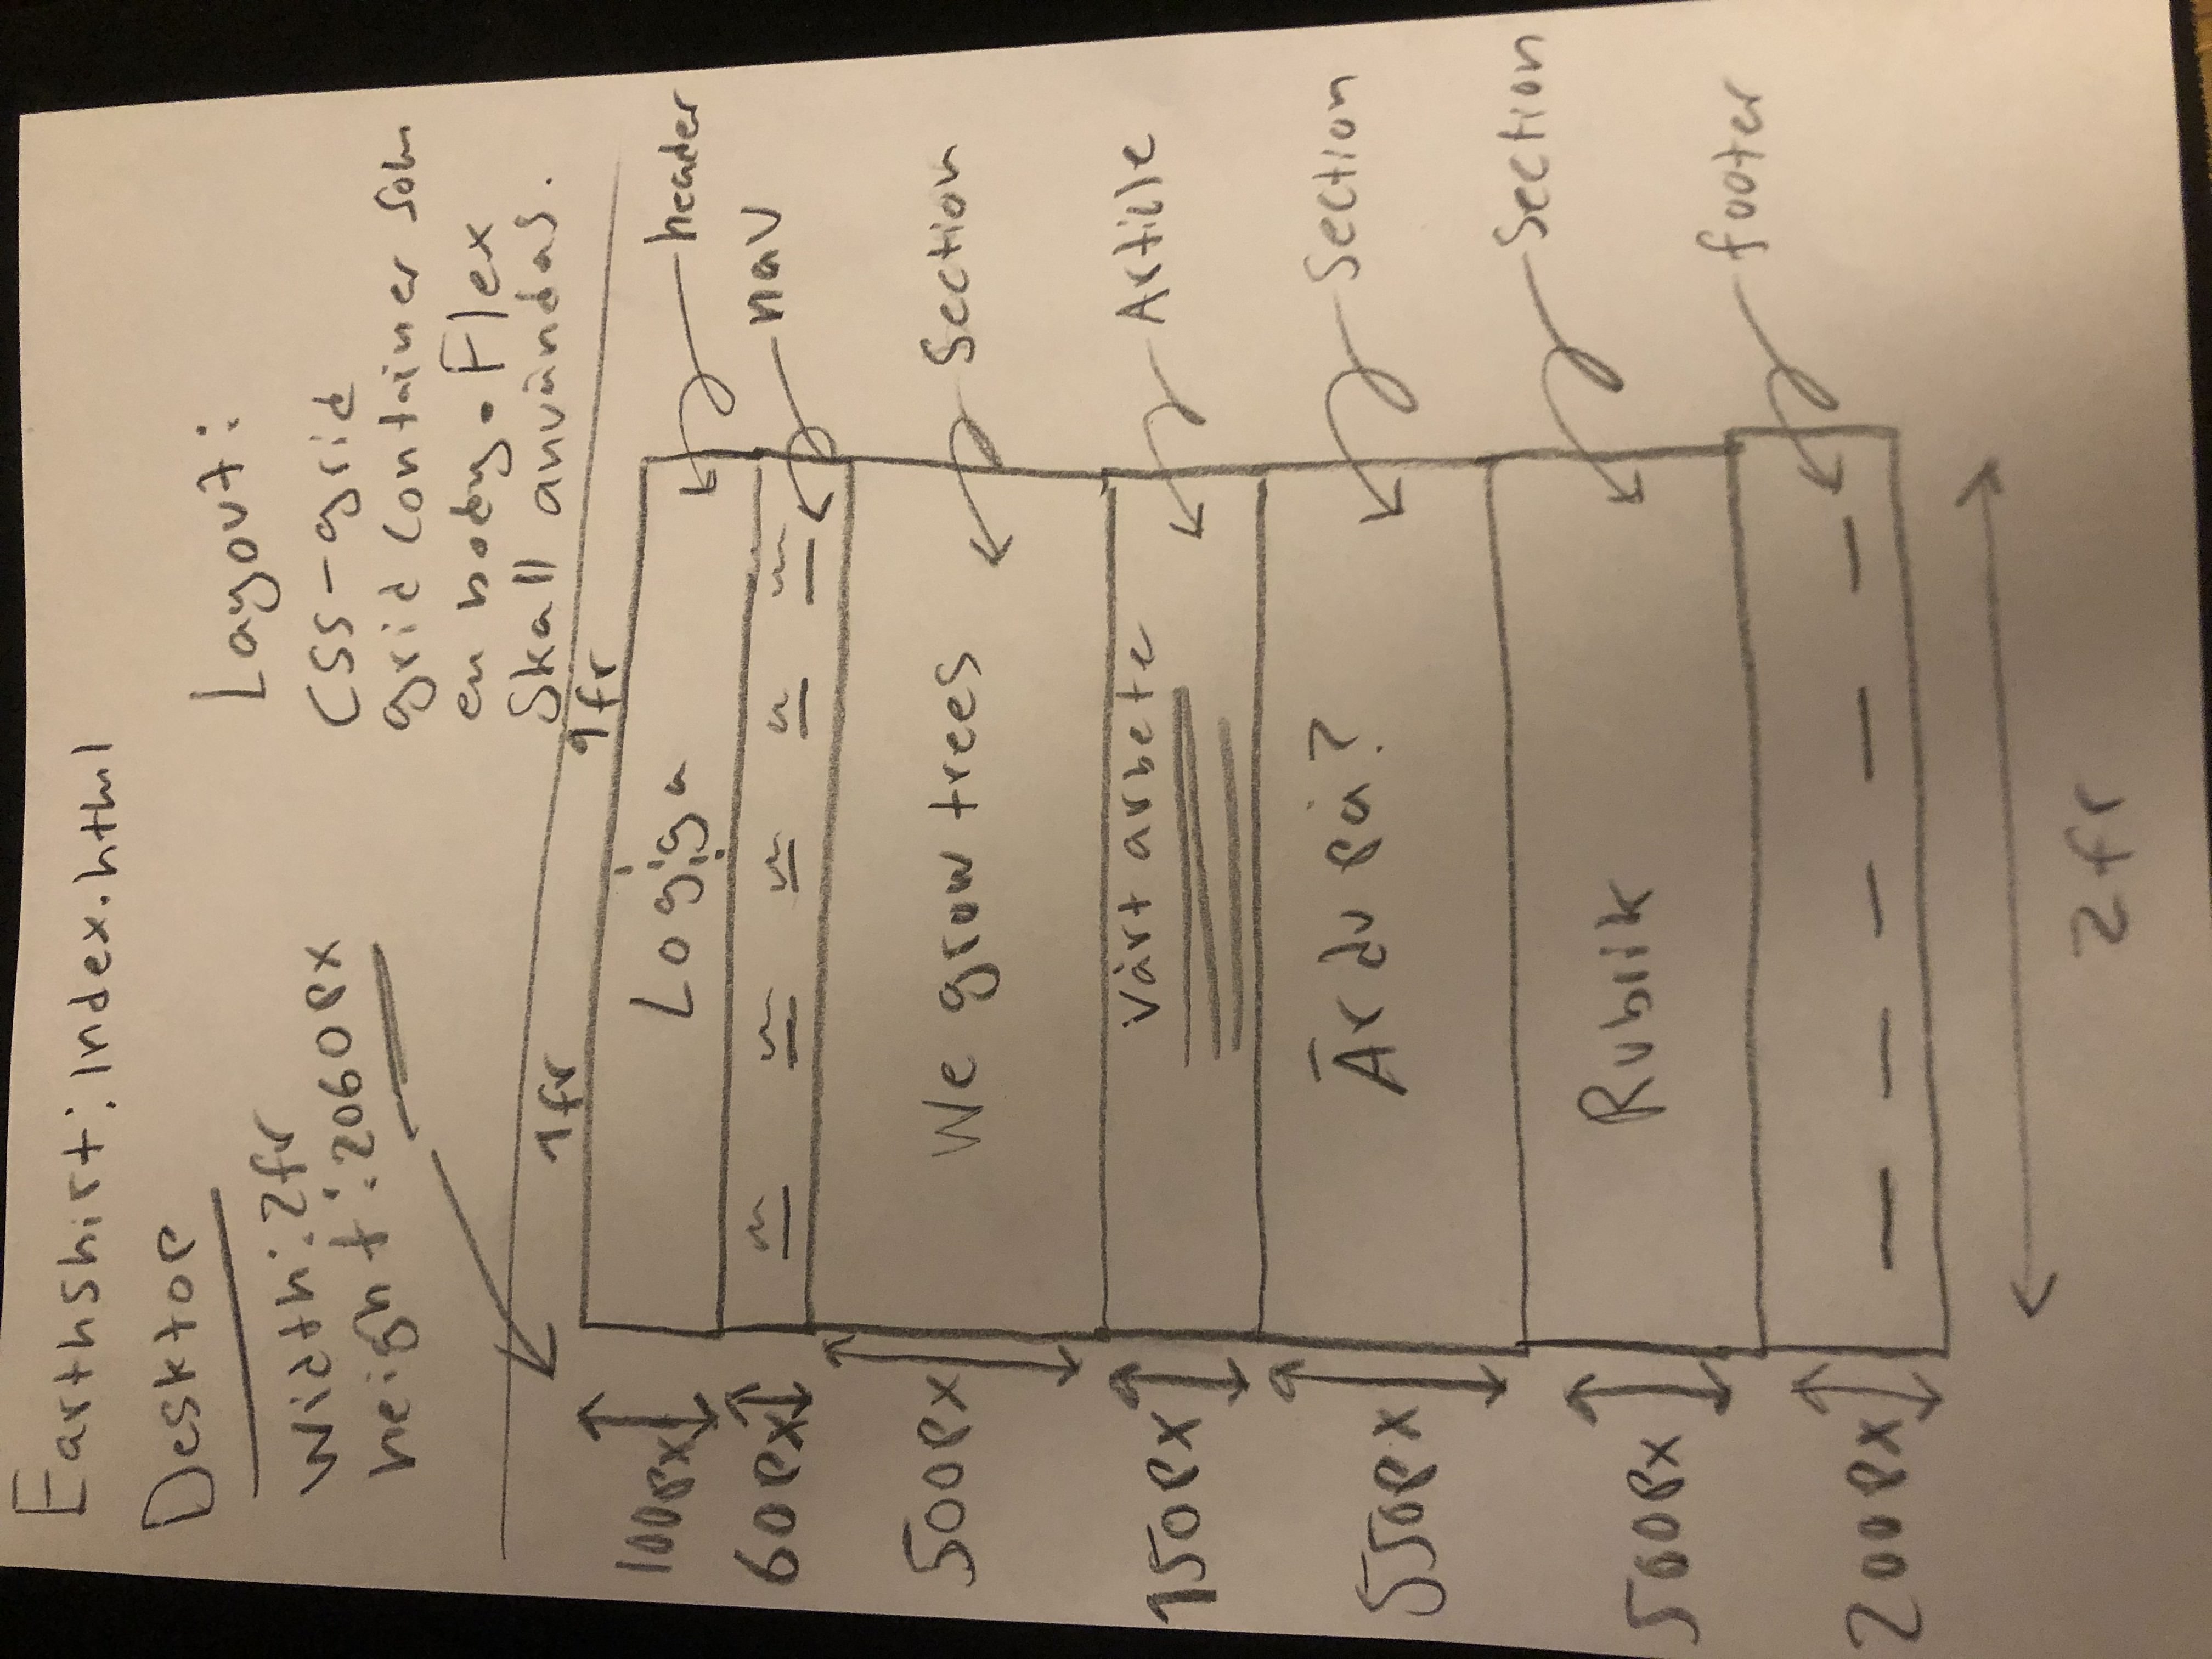 Earthshirt: Index.html
Desktop
Width: 2fr
height: 2060px
Layout:
CSS-grid
grid container som
en body. Flex
Skall användas.
1fr
1fr
100px
Logga
header
60px
nav
500px
We grow trees
Section
150px
Vårt arbete
Article
550px
Är du på?
Section
500px
Rubrik
Section
200px
footer
2fr